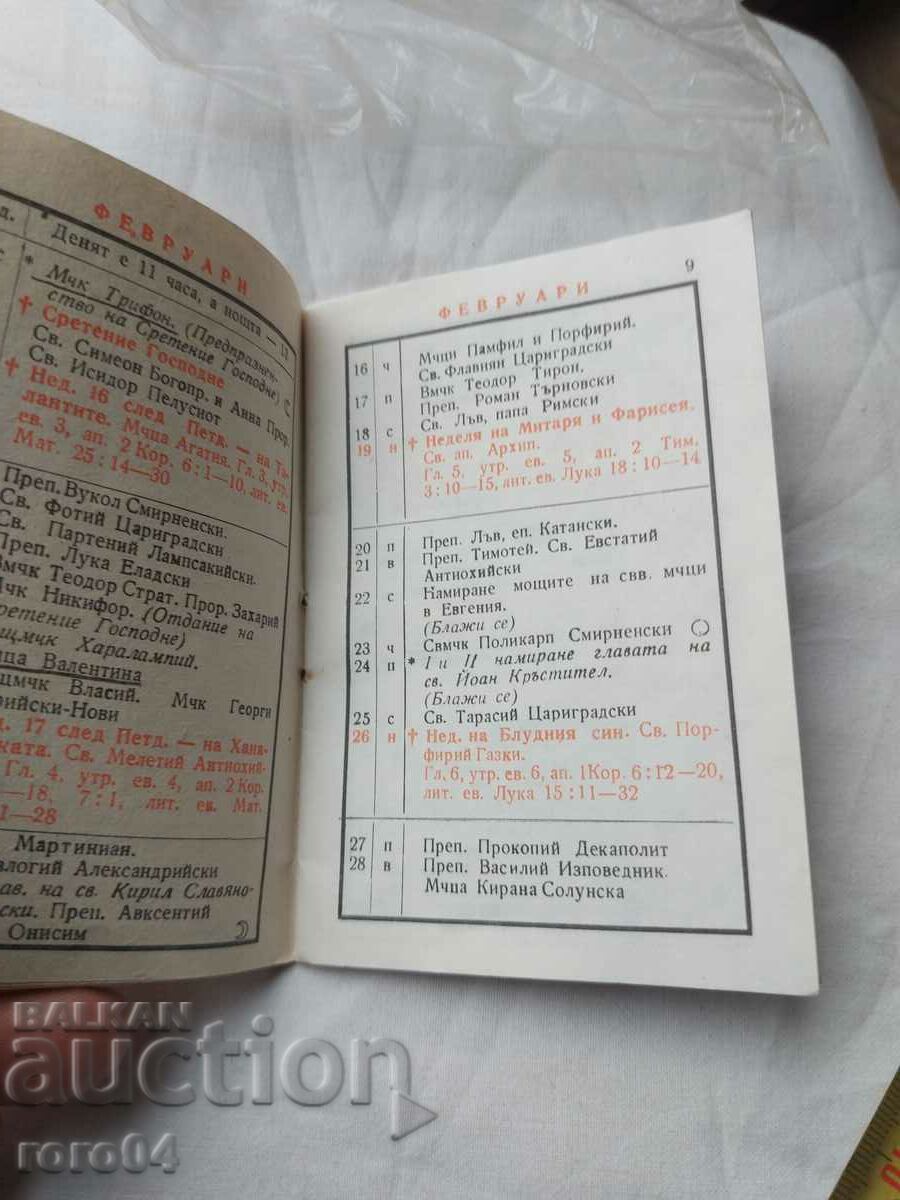 ФЕВРУАРИ
д. Денят е 11 часа, а нощта — 13
* Мчк Трифон. (Предпразнен-
ство на Сретение Господне)
† Сретение Господне
Св. Симеон Богопр. и Анна Прор.
Св. Исидор Пелусиот
† Нед. 16 след Петд. — на Та-
лантите. Мчца Агатия. Гл. 3, утр.
ев. 3, ап. 2 Кор. 6:1—10, лит. ев.
Мат. 25:14—30
Преп. Вукол Смирненски.
Св. Фотий Цариградски
Св. Партений Лампсакийски.
Преп. Лука Еладски
Вмчк Теодор Страт. Прор. Захарий
Мчк Никифор. (Отдание на
Сретение Господне)
щмчк Харалампий.
ца Валентина
щмчк Власий. Мчк Георги
рийски-Нови
д. 17 след Петд. — на Хана-
ката. Св. Мелетий Антиохий-
Гл. 4, утр. ев. 4, ап. 2 Кор.
—18, 7:1, лит. ев. Мат.
1—28
Мартиниан.
влогий Александрийски
ав. на св. Кирил Славяно-
ски. Преп. Авксентий
Онисим
9
ФЕВРУАРИ
16 ч Мчци Памфил и Порфирий.
Св. Флавиян Цариградски
17 п Вмчк Теодор Тирон.
Преп. Роман Търновски
18 с Св. Лъв, папа Римски
19 н † Неделя на Митаря и Фарисея.
Св. ап. Архип.
Гл. 5, утр. ев. 5, ап. 2 Тим.
3:10—15, лит. ев. Лука 18:10—14
20 п Преп. Лъв, еп. Катански.
21 в Преп. Тимотей. Св. Евстатий
Антиохийски
22 с Намиране мощите на свв. мчци
в Евгения.
(Блажи се)
23 ч Свмчк Поликарп Смирненски
24 п * I и II намиране главата на
св. Йоан Кръстител.
(Блажи се)
25 с Св. Тарасий Цариградски
26 н † Нед. на Блудния син. Св. Пор-
фирий Газки.
Гл. 6, утр. ев. 6, ап. 1Кор. 6:12—20,
лит. ев. Лука 15:11—32
27 п Преп. Прокопий Декаполит
28 в Преп. Василий Изповедник.
Мчца Кирана Солунска
BALKAN
auction
roro04